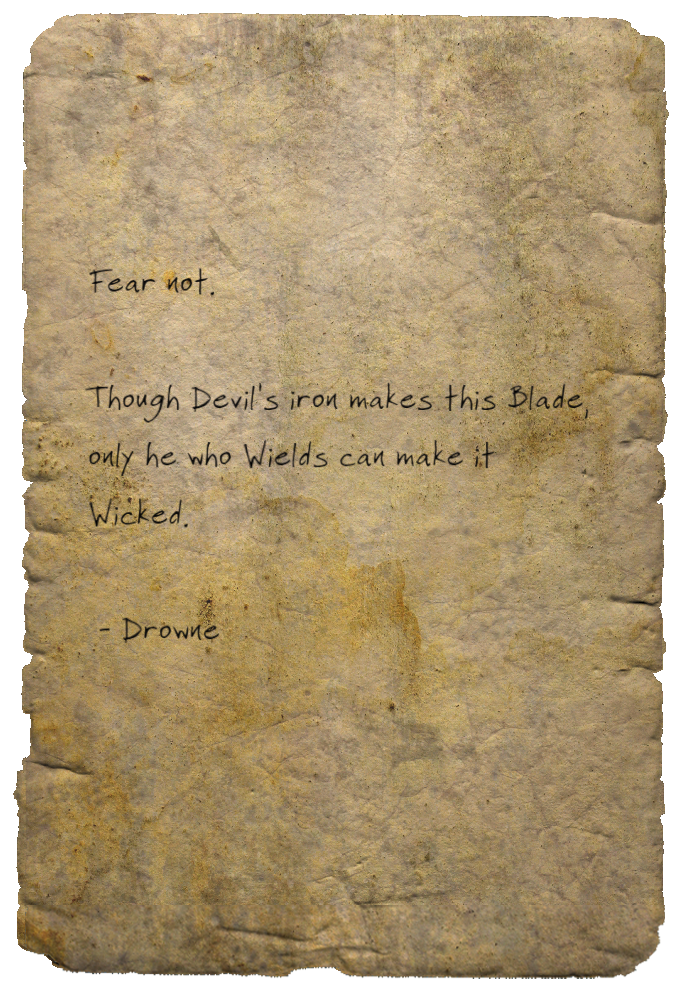 Fear not.
Though Devil's iron makes this Blade,
only he who Wields can make it
Wicked.
- Drowne